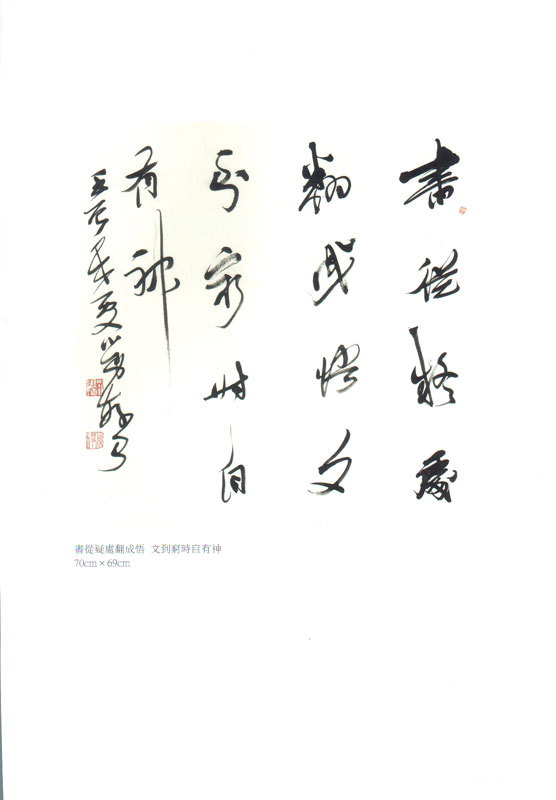 書從疑處
翻成悟文
到窮時自
有神
書從疑處翻成悟 文到窮時自有神
70cm×69cm